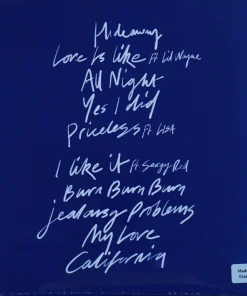 Hideaway
Love Is Like ft Lil Wayne
All Night
Yes I did
Priceless ft. LISA
I like it ft Sexyy Red
Burn Burn Burn
jealousy Problems
My Love
California
Made